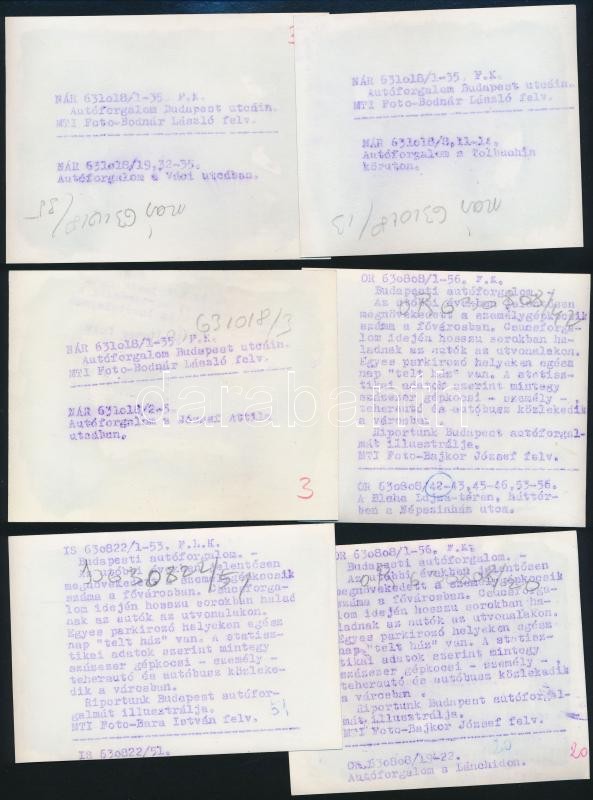 NÁR 631o18/1-35. F.K.
Autóforgalom Budapest utcáin.
MTI Foto-Bodnár László felv.
NÁR 631o18/19,32-35.
Autóforgalom a Váci utcában.
NÁR 631o18/1-35. F.K.
Autóforgalom Budapest utcáin.
MTI Foto-Bodnár László felv.
NÁR 631o18/8,11-14.
Autóforgalom a Tolbuchin
köruton.
631018/3
NÁR 631o18/1-35. F.K.
Autóforgalom Budapest utcáin.
MTI Foto-Bodnár László felv.
NÁR 631o18/2-5.
Autóforgalom a József Attila
utcában.
3
OR 63o8o8/1-56. F.K.
Budapesti autóforgalom.
Az utóbbi években jelentősen
megnövekedett a személygépkocsik
száma a fővárosban. Csucsforga-
lom idején hosszu sorokban ha-
ladnak az autók az utvonalakon.
Egyes parkirozó helyeken egész
nap "telt ház" van. A statisz-
tikai adatok szerint mintegy
százezer gépkocsi - személy -,
teherautó és autóbusz közlekedik
a városban.
Riportunk Budapest autóforgal-
mát illusztrálja.
MTI Foto-Bajkor József felv.
OR 63o8o8/42-43,45-46,53-56.
A Blaha Lujza-téren, háttér-
ben a Népszinház utca.
IS 63o822/1-53. F.L.K.
Budapesti autóforgalom. -
Az utóbbi években jelentősen
megnövekedett a személygépkocsik
száma a fővárosban. Csucsforga-
lom idején hosszu sorokban halad
nak az autók az utvonalakon.
Egyes parkirozó helyeken egész
nap "telt ház" van. A statisz-
tikai adatok szerint mintegy
százezer gépkocsi - személy -
teherautó és autóbusz közleke-
dik a városban.
Riportunk Budapest autófor-
galmát illusztrálja.
MTI Foto-Bara István felv.
51
IS 63o822/51.
OR 63o8o8/1-56. F.K.
Budapesti autóforgalom. -
Az utóbbi években jelentősen
megnövekedett a személygépkocsik
száma a fővárosban. Csucsforga-
lom idején hosszu sorokban ha-
ladnak az autók az utvonalakon.
Egyes parkirozó helyeken egész
nap "telt ház" van. A statisz-
tikai adatok szerint mintegy
százezer gépkocsi - személy -,
teherautó és autóbusz közlekedik
a városban.
Riportunk Budapest autóforgal-
mát illusztrálja.
MTI Foto-Bajkor József felv.
20
20
OR 63o8o8/19-22.
Autóforgalom a Lánchidon.
darabanth